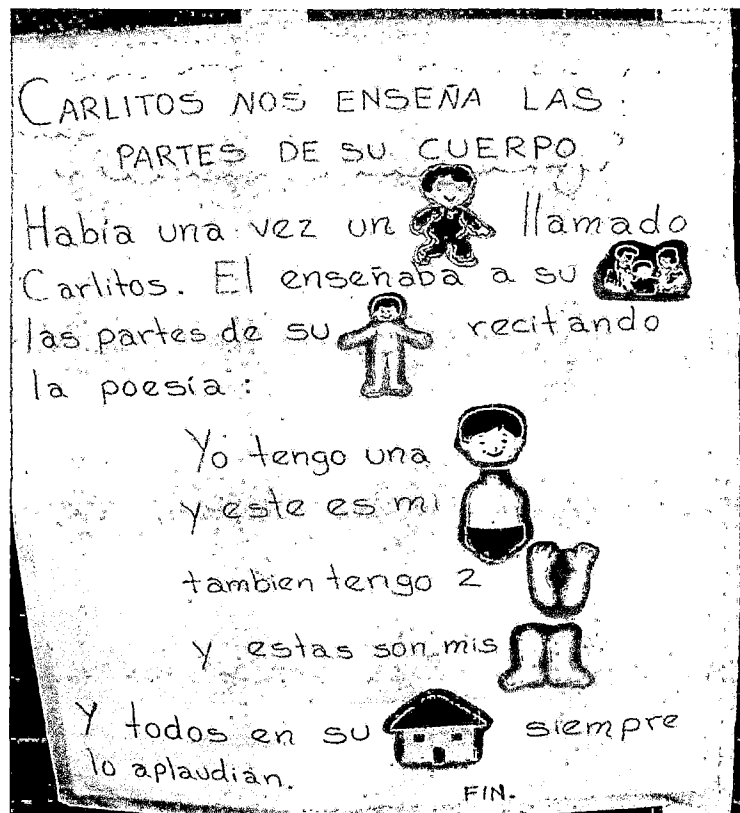 CARLITOS NOS ENSEÑA LAS
PARTES DE SU CUERPO
Había una vez un llamado
Carlitos. El enseñaba a su
las partes de su recitando
la poesía:
Yo tengo una
y este es mi
tambien tengo 2
y estas son mis
Y todos en su siempre
lo aplaudian.
FIN.